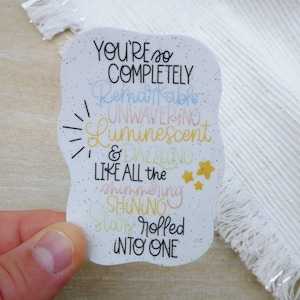 YOU'RE so
COMPLETELY
Remarkable
UNWAVERING
Luminescent
& DAZZLING
LIKE ALL the
shimmering
SHINING
Stars rolled
INTO ONE